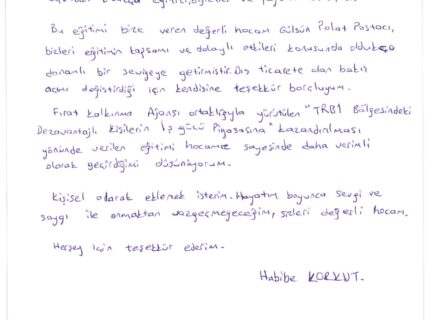 Bu eğitimi bize veren değerli hocam Gülsün Polat Postacı,
bizleri eğitimin kapsamı ve dolaylı etkileri konusunda oldukça
donanlı bir seviyeye getirmiştir. Dış ticarete olan bakış
açımı değiştirdiği için kendisine teşekkür borçluyum.
Fırat Kalkınma Ajansı ortaklığıyla yürütülen "TRB1 Bölgesindeki
Dezavantajlı Kişilerin İş gücü Piyasasına" kazandırılması
yönünde verilen eğitimi hocamız sayesinde daha verimli
olarak geçirdiğimi düşünüyorum.
Kişisel olarak eklemek isterim. Hayatım boyunca sevgi ve
saygı ile anmaktan vazgeçmeyeceğim, sizleri değerli hocam.
Herşey için teşekkür ederim.
Habibe KORKUT.